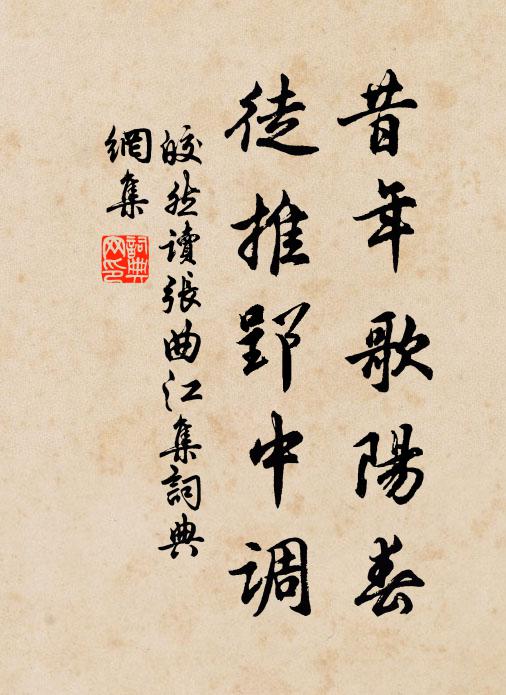 昔年歌陽春
徒推郢中调
皎然讀張曲江集詞典
網集
詞典
网印